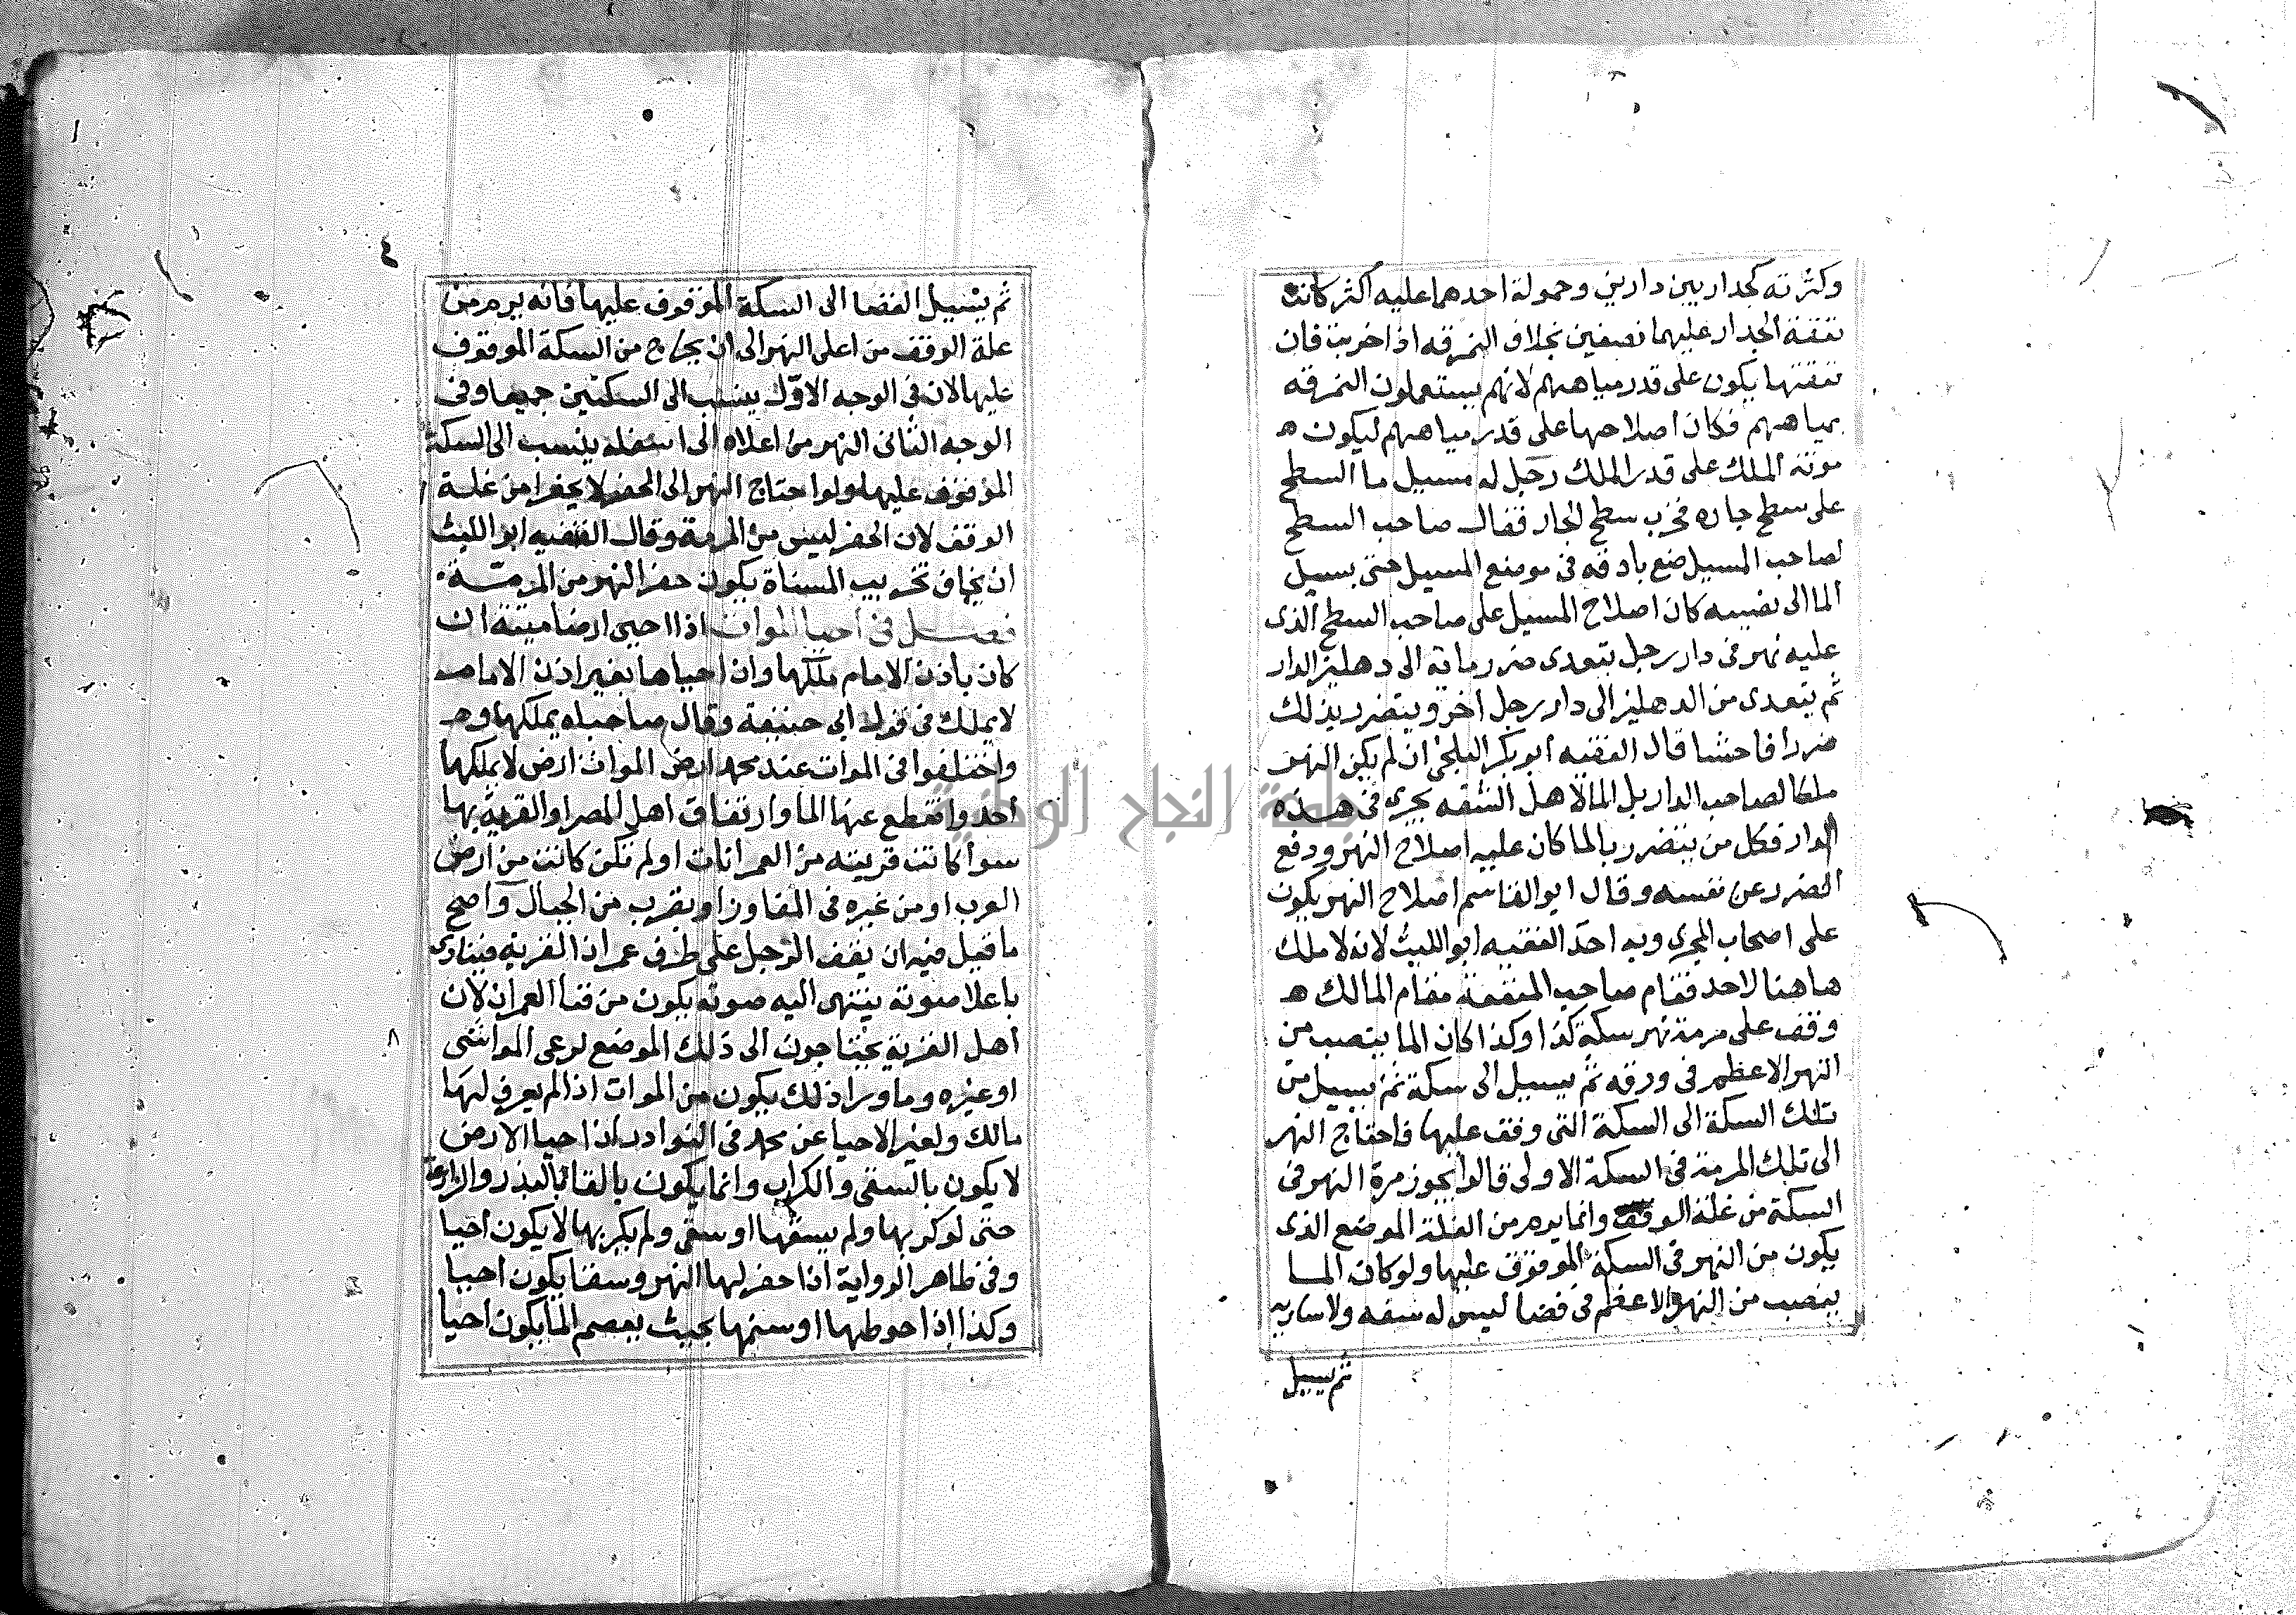 وكثرته كجدار بين دارين وحمولة احدهما عليه اكثر كانت
نفقة الجدار عليهما نصفين بخلاف النمرقه اذا خربت فان
نفقتها يكون على قدر مياههم لانهم يستعملون النمرقه
بمياههم فكان اصلاحها على قدر مياههم ليكون ه
مونة الملك على قدر الملك رجل له مسيل ما السطح
على سطح جاره فخرب سطح الجار فقال صاحب السطح
لصاحب المسيل ضع بادقه فى موضع المسيل حتى يسيل
الما الى نصيبه كان اصلاح المسيل على صاحب السطح الذى
عليه نهر فى دار رجل يتعدى ضرر مائه الى دهليز الدار
ثم يتعدى من الدهليز الى دار رجل اخر ويتضرر بذلك
ضررا فاحشا قال الفقيه ابو بكر البلخى ان لم يكن النهر
ملكا لصاحب الدار بل الما لاهل الشفه يجرى فى هذه
الدار فكل من يتضرر بالما كان عليه اصلاح النهر ودفع
الضرر عن نفسه وقال ابو القاسم اصلاح النهر يكون
على اصحاب المجرى وبه اخذ الفقيه ابو الليث لانه لا ملك
هاهنا لاحد فقام صاحب المنفعة مقام المالك ه
وقف على مرمة نهر سكة كذا وكذا كان الما ينصب من
النهر الاعظم فى ورقه ثم يسيل الى سكة ثم يسيل من
تلك السكة الى السكة التى وقف عليها فاحتاج النهر
الى تلك المرمة فى السكة الاولى قالوا يجوز مرة النهر فى
السكة من غلة الوقف وانما يرم من الغلة الموضع الذى
يكون من النهر فى السكة الموقوف عليها ولو كان الما
ينصب من النهر الاعظم فى فضا ليس له سفه ولا ساربه
ثم يسيل
جامعة النجاح الوطنية
٤
ثم يسيل الفضا الى السكة الموقوف عليها فانه يرم من
غلة الوقف من اعلى النهر الى ان يخرج من السكة الموقوف
عليها لان فى الوجه الاول ينسب الى السكتين جميعا وفى
الوجه الثانى النهر من اعلاه الى اسفله ينسب الى السكة
الموقوف عليها ولو احتاج النهر الى الحفر لا يحفر من غلة
الوقف لان الحفر ليس من المرمة وقال الفقيه ابو الليث
ان يخاف تخريب المسناة يكون حفر النهر من المرمّة
فصل فى احيا الموات اذا احيى ارضا ميتة ان
كان باذن الامام ملكها وان احياها بغير اذن الامام
لا يملك فى قول ابى حنيفة وقال صاحباه يملكها وم
واختلفوا فى الموات عند محمد ارض الموات ارض لا يملكها
احد وانقطع عنها الما وارتفاق اهل المصر او القرية بها
سوا كانت قريبه من العمرانات او لم تكن كانت من ارض
العرب او من غيره فى المفاوز او يقرب من الجبال واصح
ما قيل فيه ان يقف الرجل على طرف عمران القريه فينادى
باعلا صوته ينتهى اليه صوته يكون من فنا العمران لان
اهل القرية يحتاجون الى ذلك الموضع لرعى المواشى
او غيره وما ورا ذلك يكون من الموات اذا لم يعرف لها
مالك ولغير الاحيا عن محمد فى النوادر اذا احيا الارض
لا يكون بالسقى والكراب وانما يكون بالقا البذر والزراعة
حتى لو كربها ولم يسقها او سقى ولم يكربها لا يكون احيا
وفى ظاهر الرواية اذا حفر لها النهر وسقا يكون احيا
وكذا اذا حوطها او سنمها بحيث يعصم الما يكون احيا